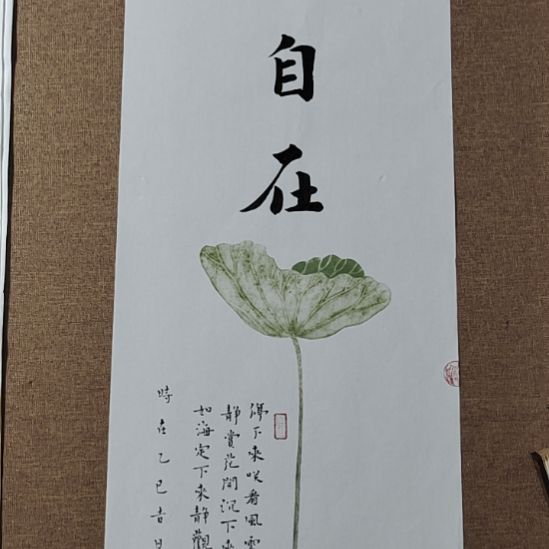 自在
停下來笑看風雲
靜賞花開沉下來
如海定下來靜觀
時在乙巳吉日